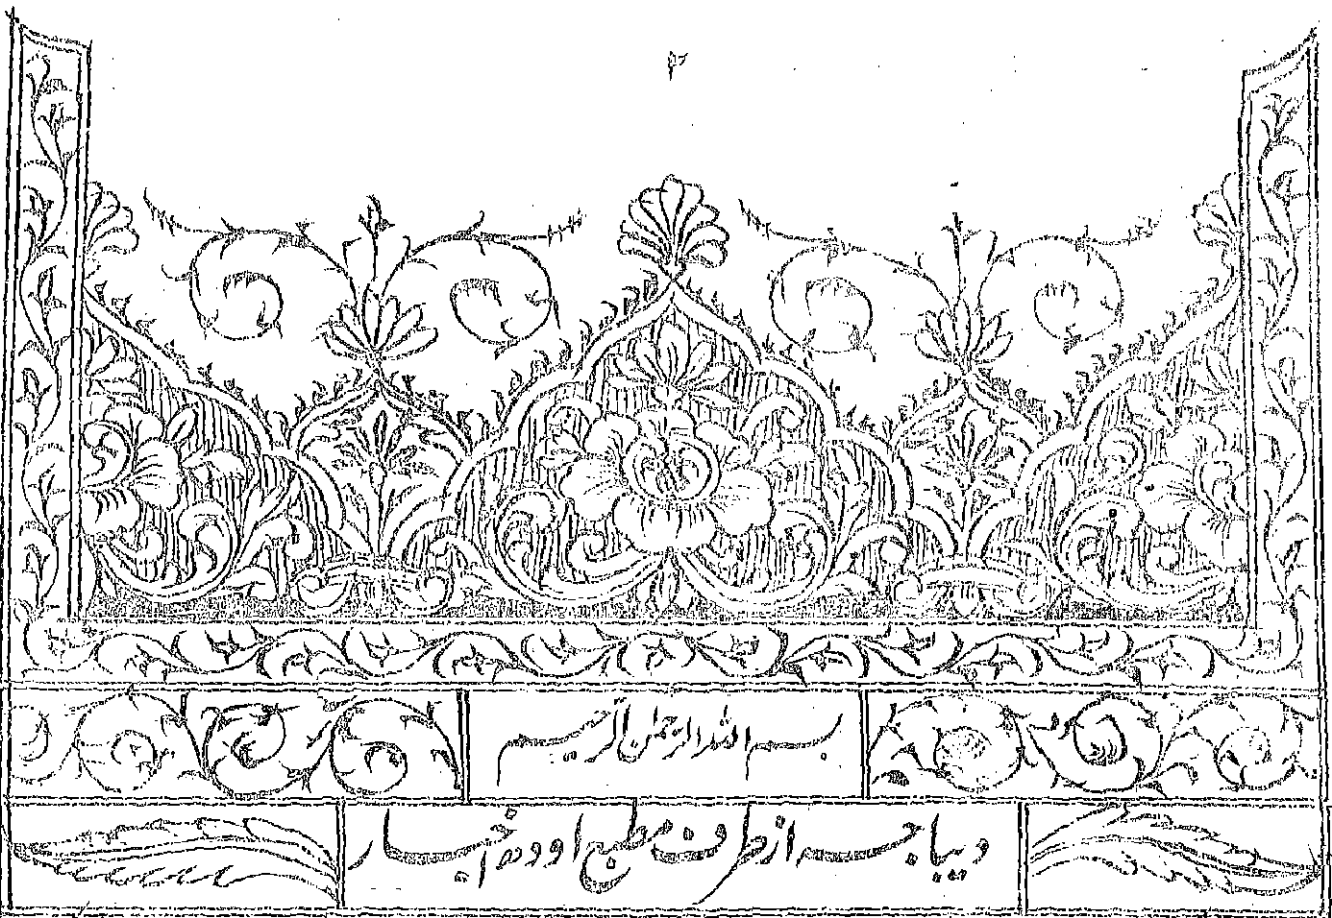 بسم الله الرحمن الرحیم
دیباچہ از طرف مطبع اودھ اخبار